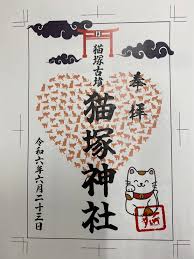 奉拝
猫塚古墳
猫塚神社
令和六年六月二十三日